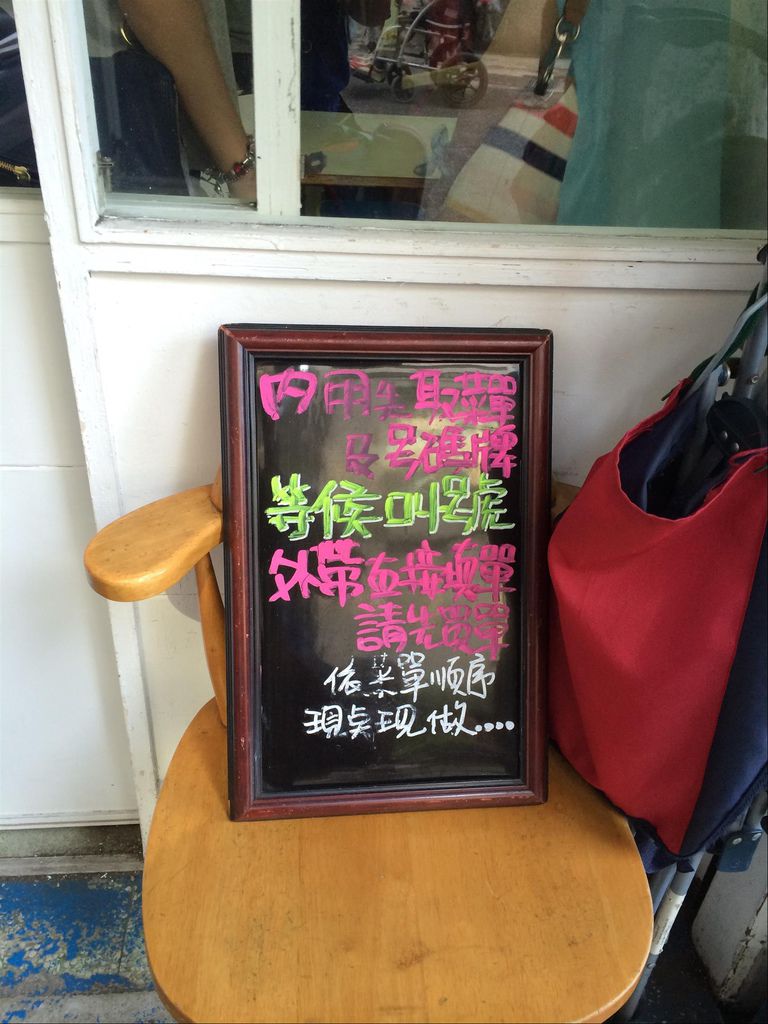 內用先取菜單
及号碼牌
等候叫号號
外帶直接填單
請先買單
依菜單順序
現点現做....